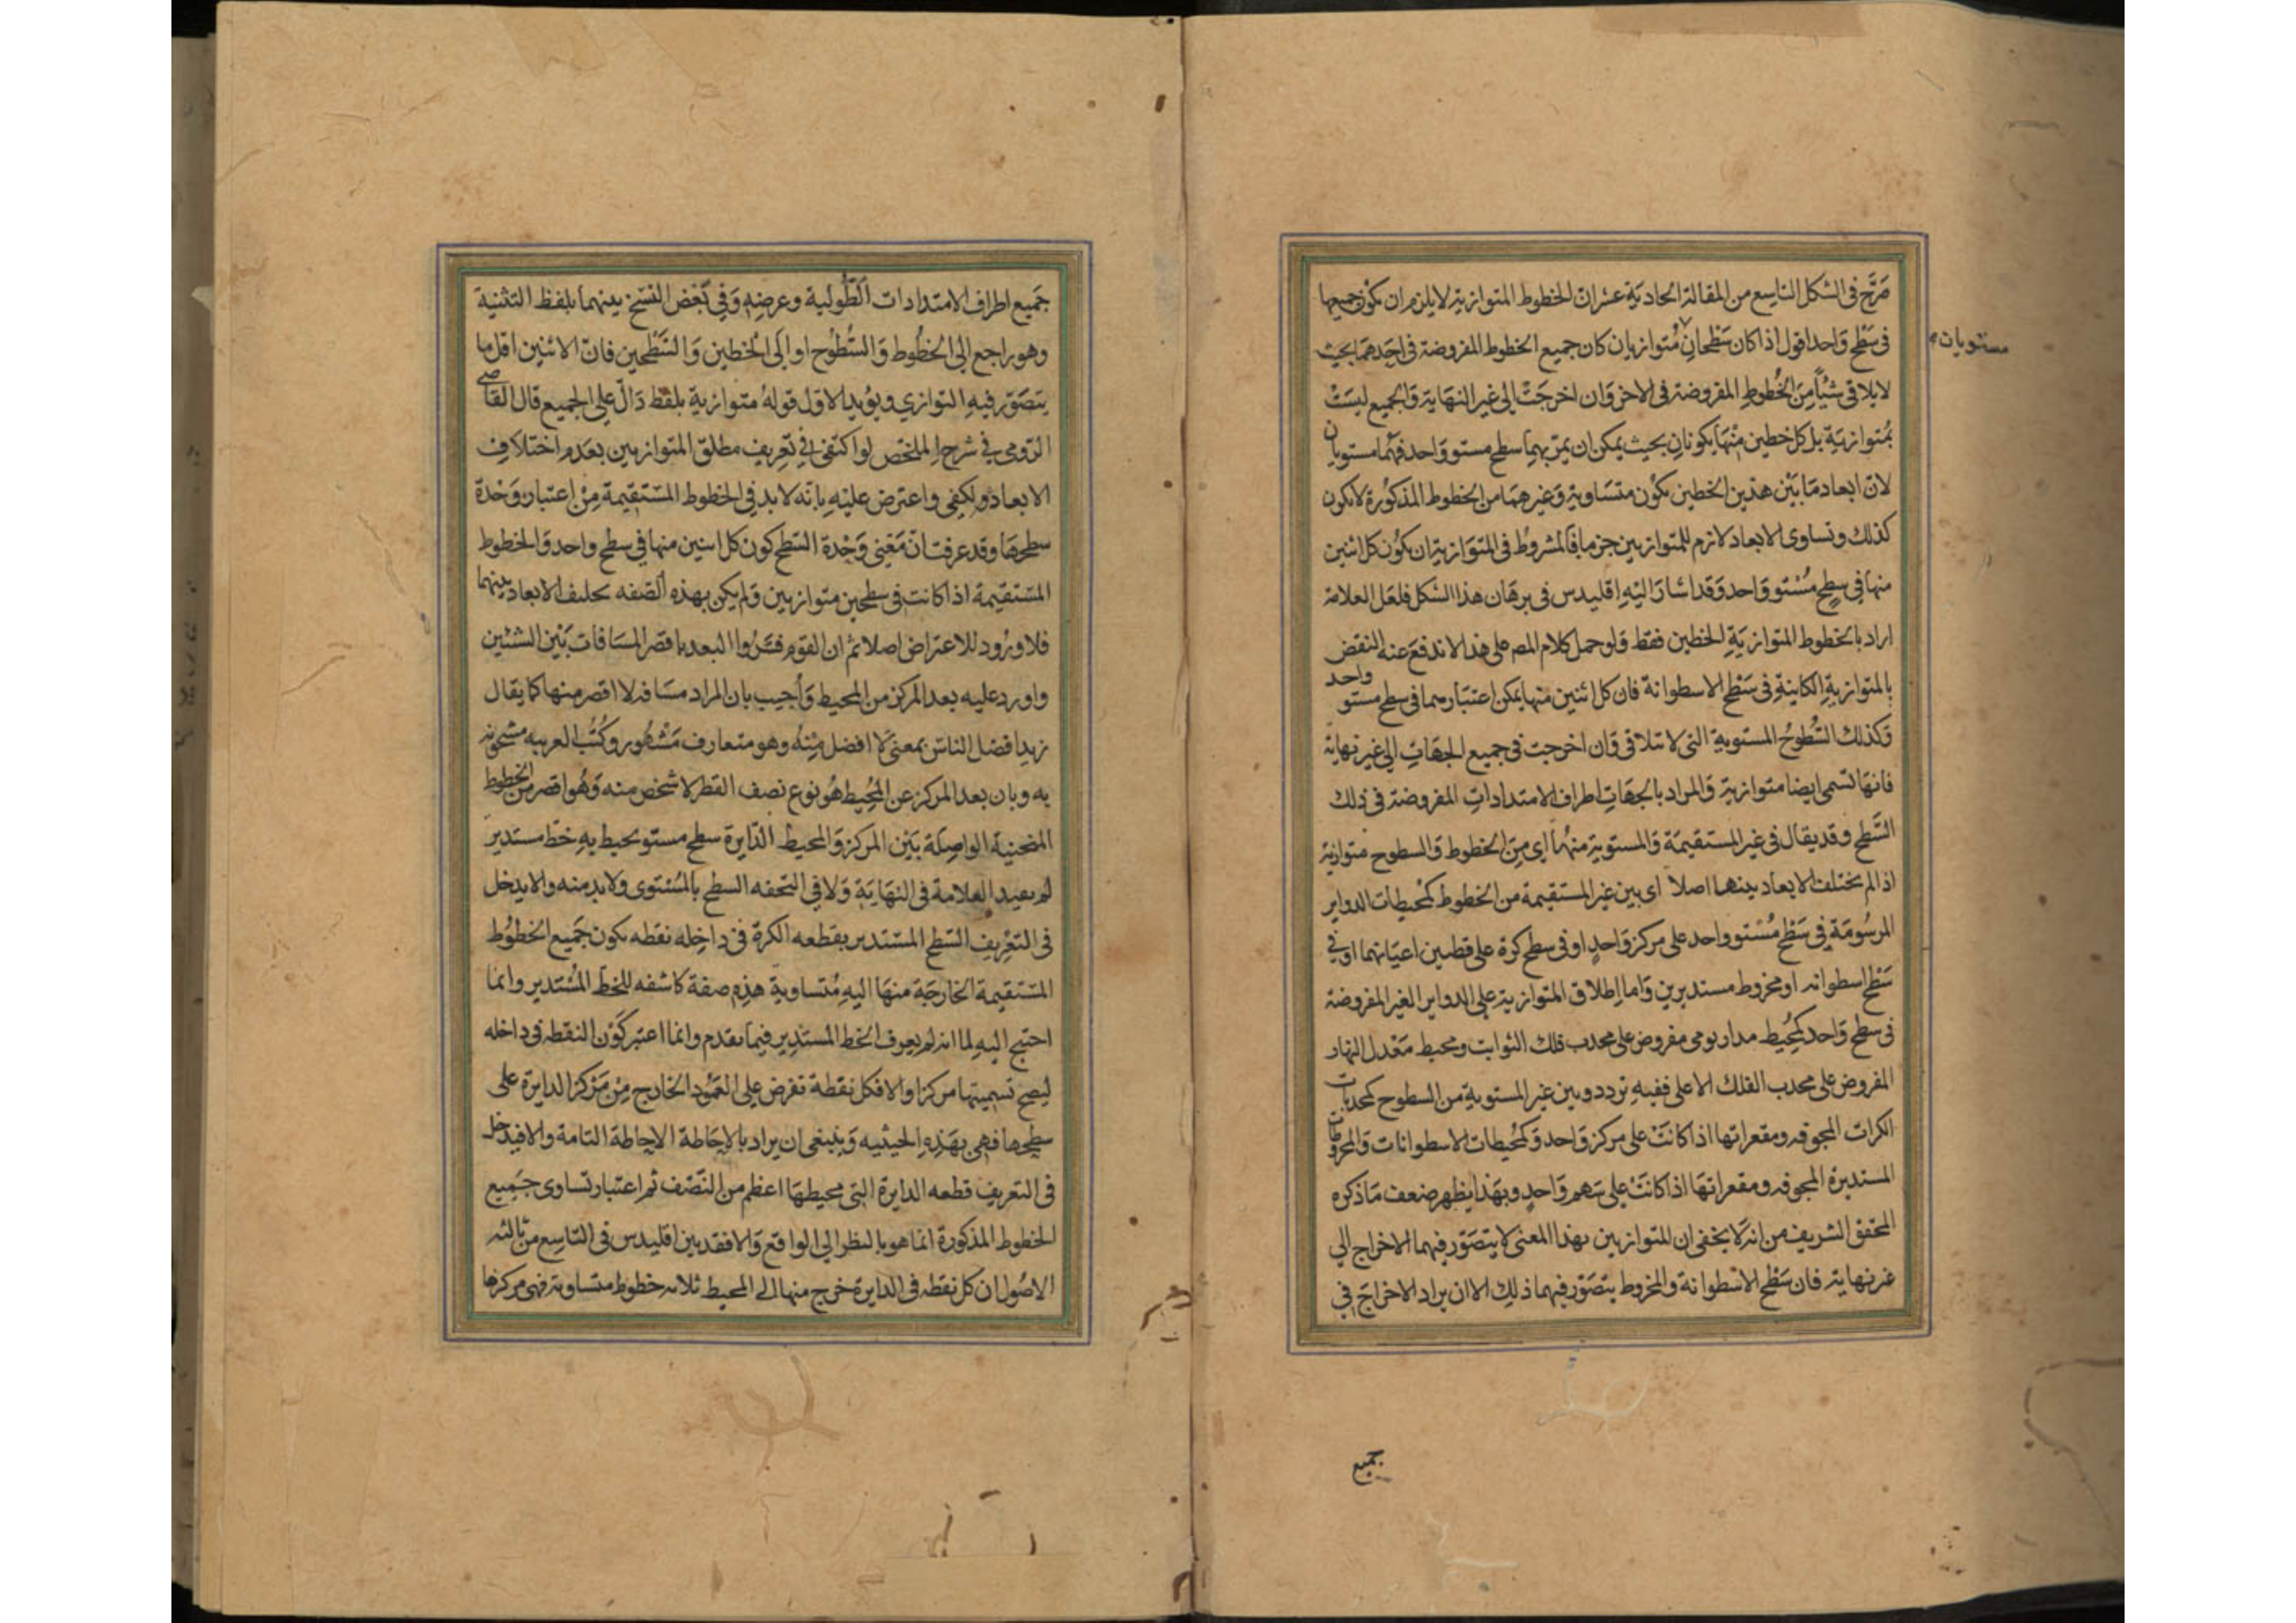 صَرَّح فى الشكل التاسِع من المقالة الحاديَة عشرانّ الخطوط المتوازية لايلزم ان يكوْن جميعها
فى سَطْح وَاحد اقول اذا كان سَطْحانِ مُتوازيان كان جميع الخطوط المفروضة فى احَدهمَا بحيث
مستويان
لايلاقى شيْأً مِنَ الخُطُوطِ المفروضة فى الاخر وَان اخرجَتْ الى غير النهَاية وَالجميع ليسَتْ
بمُتوازيَةٍ بل كل خطين مِنْهَا يكونانِ بحيث يمكن ان يمرّ بهما سطح مستو وَاحد فهُما مستويان
لانّ ابعاد مَا بَيْن هذين الخطين يكوْن متسَاوية وَغيرهمَا من الخطوط المذكوُرة لايكون
كذلك وتساوى الابعاد لازم للمتوازيين جزماً فالمشروُط فى المتوَازية ان يكوُن كل اثنين
منها فى سطحٍ مُسْتوٍ وَاحد وَقد اشارَ اليْهِ اقليدس فى برهَان هذا الشكل فلعَل العلامة
اراد بالخطوط المتوازيَةِ الخطين فقط وَلو حمل كلام المصـ على هذا لاندفعَ عنه النقض
بالمتوازيةِ الكاينةِ فى سَطْح الاسطوانة فان كل اثنين منها يمكن اعتبَارهما فى سطح مستو واحد
وَكذلك السُّطُوحُ المستويةِ التى لاتتلاقى وَان اخرجت فى جميع الجهَاتِ الى غير نهاية
فانهَا تسمى ايضا متوازية وَالمراد بالجهَاتِ اطراف الامتداداتِ المفروضة فى ذلك
السَّطح وقد يقال فى غير المستقيمَة وَالمستوية منهُما اى مِنَ الخطوط وَالسطوح متوازية
اذا لم يختلف الابعاد بينهما اصلاً اى بين غير المستقيمة من الخطوط كمُحيطات الدواير
المرسُومَةِ فى سَطْحٍ مُسْتوٍ واحد على مركز وَاحدٍ او فى سطح كرة على قطبين اعيَانهما او فى
سَطْح اسطوانه او مخروط مستديرين وَاما اِطلاق المتوازية على الدواير الغير المفروضة
فى سطح وَاحد كمحُيط مدار يومى مفروض على محدب فلك الثوابت ومحيط مَعْدل النهار
المفروض على محدب الفلك الاعلى ففيهِ تردد وبين غير المستويةِ من السطوح كمحدبات
الكرات المجوفه ومقعراتها اذا كانَتْ على مركز وَاحد وَكمُحيطات الاسطوانات وَالمخروطات
المستديرة المجوفه ومقعراتهَا اذا كانَتْ على سَهم وَاحدٍ وبهَذا يظهر ضعف مَا ذكره
المحقق الشريف من انّه لايخفى ان للمتوازيين بهذا المعنى لايتصَوّر فيهما الاخراج الى
غير نهاية فان سَطْح الاسْطوانة والمخروط يتصَوّر فيهما ذلِك الا ان يراد الاخرَاجَ فى
جميع
جَميع اطراف الامتدادات الطُّولية وعرضِهِ وَفى بَعْض النسَخ بينهما بلفظ التثنية
وهو راجع الى الخطُوط وَالسُّطُوح او الَى الخطين وَالسَّطْحين فانّ الاثنين اقل ما
يتصَوّر فيهِ التوازي ويؤيد الاوّل قولهُ متوازية بلفظ دَالّ على الجميع قال القاضى
الرّومى في شرح الملخّص لو اكتفى في تعريف مطلق المتوازيين بعدَم اختلاف
الابعاد ولكفى واعترض عليْهِ بانّه لابد فى الخطوط المسْتقيمة مِنْ اعتبار وَحْدة
سطحهَا وقد عرفت انّ مَعْنى وَحْدة السَّطح كون كل اثنين منها في سطح واحد وَالخطوط
المسْتقيمة اذا كانت فى سطحين متوازيين وَلم يكن بهذه الصّفه يختلف الابعاد بينهما
فلا ورُود للاعتراض اصلا ثم ان القوم فسَّروُا البعد باقصر المسَافات بَيْن الشيئين
واورد عليه بعد المركز من المحيط وَأجيب بان المراد مسَافة لا اقصر منها كما يقال
زيد افضل الناس بمعنى لا افضل مِنْهُ وهو متعارف مَشْهُور وكتُب العربيه مشحونه
به وبان بعد المركز عن المُحِيط هُو نوع نصف القطر لا شخص منه وَهُوَ اقصر من الخطوط
المنحنية الواصِلة بَيْن المركز وَالمحيط الدَّايرة سطح مستوٍ يحيط بهِ خطّ مستدير
لم يقيد العلامة فى النهَايَة وَلا فى التحفه السطح بالمُسْتوى ولابد منه والا يدخل
فى التعْرِيف السَّطح المسْتدير بقطعه الكرة فى داخِله نقطه يكون جَميع الخطوُط
المسْتقيمة الخارجَة منهَا اليهِ مُتساوية هذِه صفة كاشفه للخط المُسْتدير وانما
احتيج اليهِ لما انه لم يعرف الخط المستَدير فيما تقدم وانما اعتبر كَوْن النقطه فى داخله
ليصح تسميتها مركزا والا فكل نقطة تفرض على العَمُود الخارج مِنْ مَرْكز الدايرة على
سطحها فهى بهَذهِ الحيثيه وَينبغى ان يراد بالاِحَاطة الاِحَاطة التامة والا فيدخل
فى التعريف قطعه الدايرة التى محيطهَا اعظم من النّصْف ثم اعتبار تساوى جَميع
الخطوط المذكورة انما هو بالنظر الى الواقع وَالا فقد بين اقليدس فى التاسِع من ثالثه
الاصُول ان كل نقطه فى الدايرة خرج منها الى المحيط ثلاثه خطوط متساويه فهى مركزها